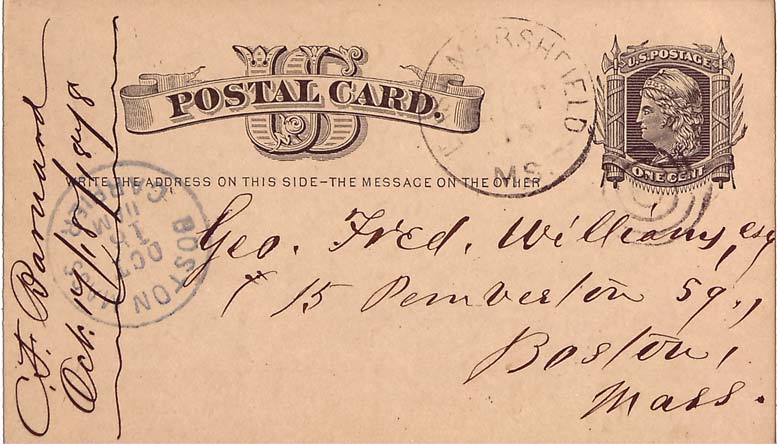 POSTAL CARD.
U.S. POSTAGE
ONE CENT
MARSHFIELD
MS.
WRITE THE ADDRESS ON THIS SIDE-THE MESSAGE ON THE OTHER
BOSTON
OCT
Geo. Fred. Williams, esq
15 Pemberton Sq.,
Boston,
Mass.
C. F. Barnard
Oct. 1878